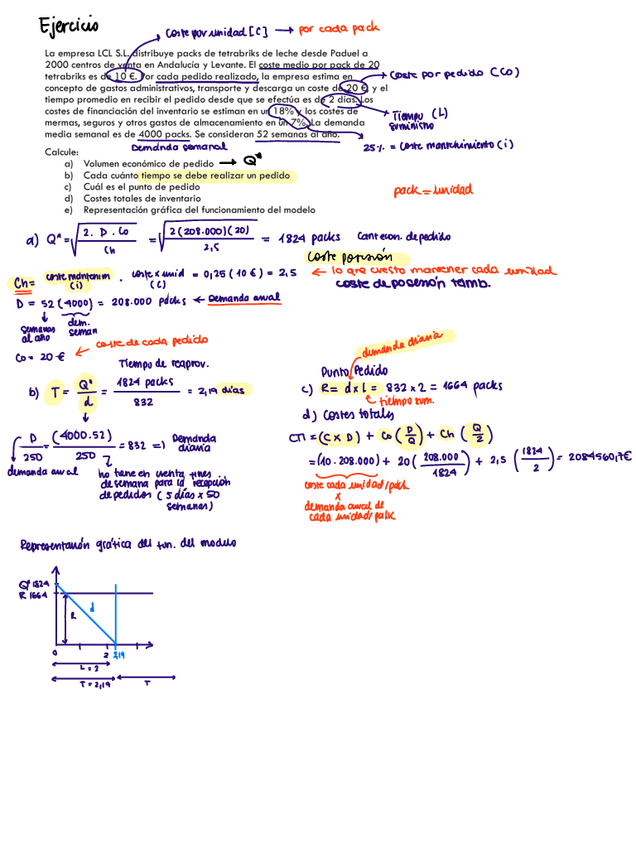 Ejercicio
Coste por unidad [C] → por cada pack
La empresa LCL S.L. distribuye packs de tetrabriks de leche desde Paduel a
2000 centros de venta en Andalucía y Levante. El coste medio por pack de 20
tetrabriks es de 10 €. Por cada pedido realizado, la empresa estima en
concepto de gastos administrativos, transporte y descarga un coste de 20 € y el
tiempo promedio en recibir el pedido desde que se efectúa es de 2 días. Los
costes de financiación del inventario se estiman en un 18% y los costes de
mermas, seguros y otros gastos de almacenamiento en un 7%. La demanda
media semanal es de 4000 packs. Se consideran 52 semanas al año.
→ Coste por pedido (Co)
Tiempo (L)
suministro
Demanda semanal
25% = coste mantenimiento (i)
Calcule:
a) Volumen económico de pedido → Q*
b) Cada cuánto tiempo se debe realizar un pedido
c) Cuál es el punto de pedido
d) Costes totales de inventario
e) Representación gráfica del funcionamiento del modelo
pack = unidad
a) Q* = √(2. D. Co / Ch) = √(2(208.000)(20) / 2,5) = 1824 packs Cant econ. de pedido
Coste posesión
Ch = coste mantenim (i) . coste x unid (C) = 0,25 (10 €) = 2,5 ← lo que cuesta mantener cada unidad
coste de posesión tamb.
D = 52 (4000) = 208.000 packs ← Demanda anual
semanas al año
dem. seman
Co = 20 € ← coste de cada pedido
Tiempo de reaprov.
b) T = Q* / d = 1824 packs / 832 = 2,19 días
D / 250 = (4000.52) / 250 = 832 => Demanda diaria
demanda anual
no tiene en cuenta fines
de semana para la recepción
de pedidos (5 días x 50
semanas)
demanda diaria
Punto Pedido
c) R = d x L = 832 x 2 = 1664 packs
tiempo sum.
d) Costes totales
CTI = (C x D) + Co (D/Q) + Ch (Q/2)
= (10 . 208.000) + 20 (208.000 / 1824) + 2,5 (1824 / 2) = 2084560,7€
coste cada unidad/pack
x
demanda anual de
cada unidad/pack
Representación gráfica del fun. del modelo
Q* 1824
R 1664
R
d
0
2
2,19
L = 2
T = 2,19
T